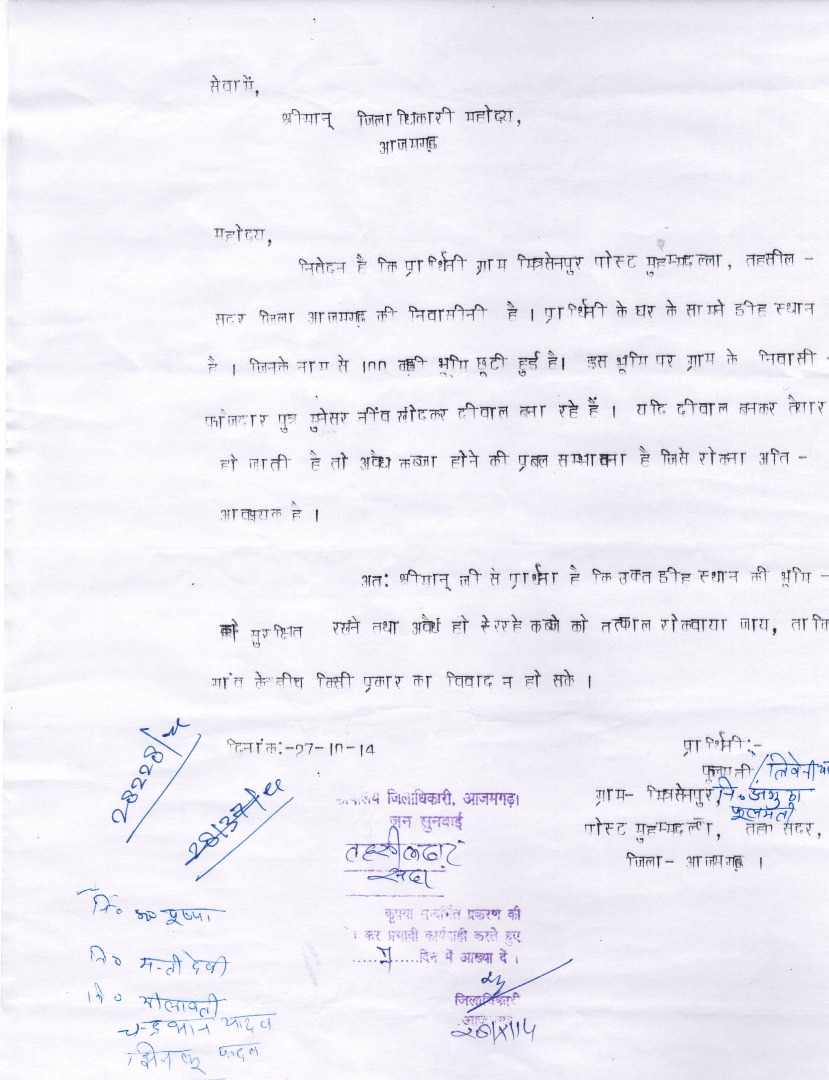 सेवामें,
श्रीमान् जिलाधिकारी महोदय,
आजमगढ़
महोदय,
निवेदन है कि प्रार्थिनी ग्राम मित्रसेनपुर पोस्ट मुहम्मदल्ला, तहसील -
सदर जिला आजमगढ़ की निवासीनी है । प्रार्थिनी के घर के सामने डीह स्थान
है । जिनके नाम से 100 कड़ी भूमि छूटी हुई है। इस भूमि पर ग्राम के निवासी -
फौजदार पुत्र मुनेसर नींव खोदकर दीवाल बना रहे हैं । यदि दीवाल बनकर तैयार
हो जाती है तो अवैध कब्जा होने की प्रबल सम्भावना है जिसे रोकना अति -
आवश्यक है ।
अत: श्रीमान् जी से प्रार्थना है कि उक्त डीह स्थान की भूमि -
को सुरक्षित रखने तथा अवैध हो रहे कब्जे को तत्काल रोकवाया जाय, ताकि
गांव के बीच किसी प्रकार का विवाद न हो सके ।
दिनांक:-27-10-14
प्रार्थिनी:-
फूलमती
ग्राम- मित्रसेनपुर,
फूलमती
पोस्ट मुहम्मदल्ला, तह0 सदर,
जिला- आजमगढ़ ।
28228
कार्यालय जिलाधिकारी, आजमगढ़।
जन सुनवाई
तहसीलदार
सदर
कृपया सन्दर्भित प्रकरण की
कर प्रभावी कार्यवाही करते हुए
दिन में आख्या दें ।
जिलाधिकारी
नि० पुष्पा
नि० मन्ती देवी
नि०
चन्द्रभान यादव
यादव